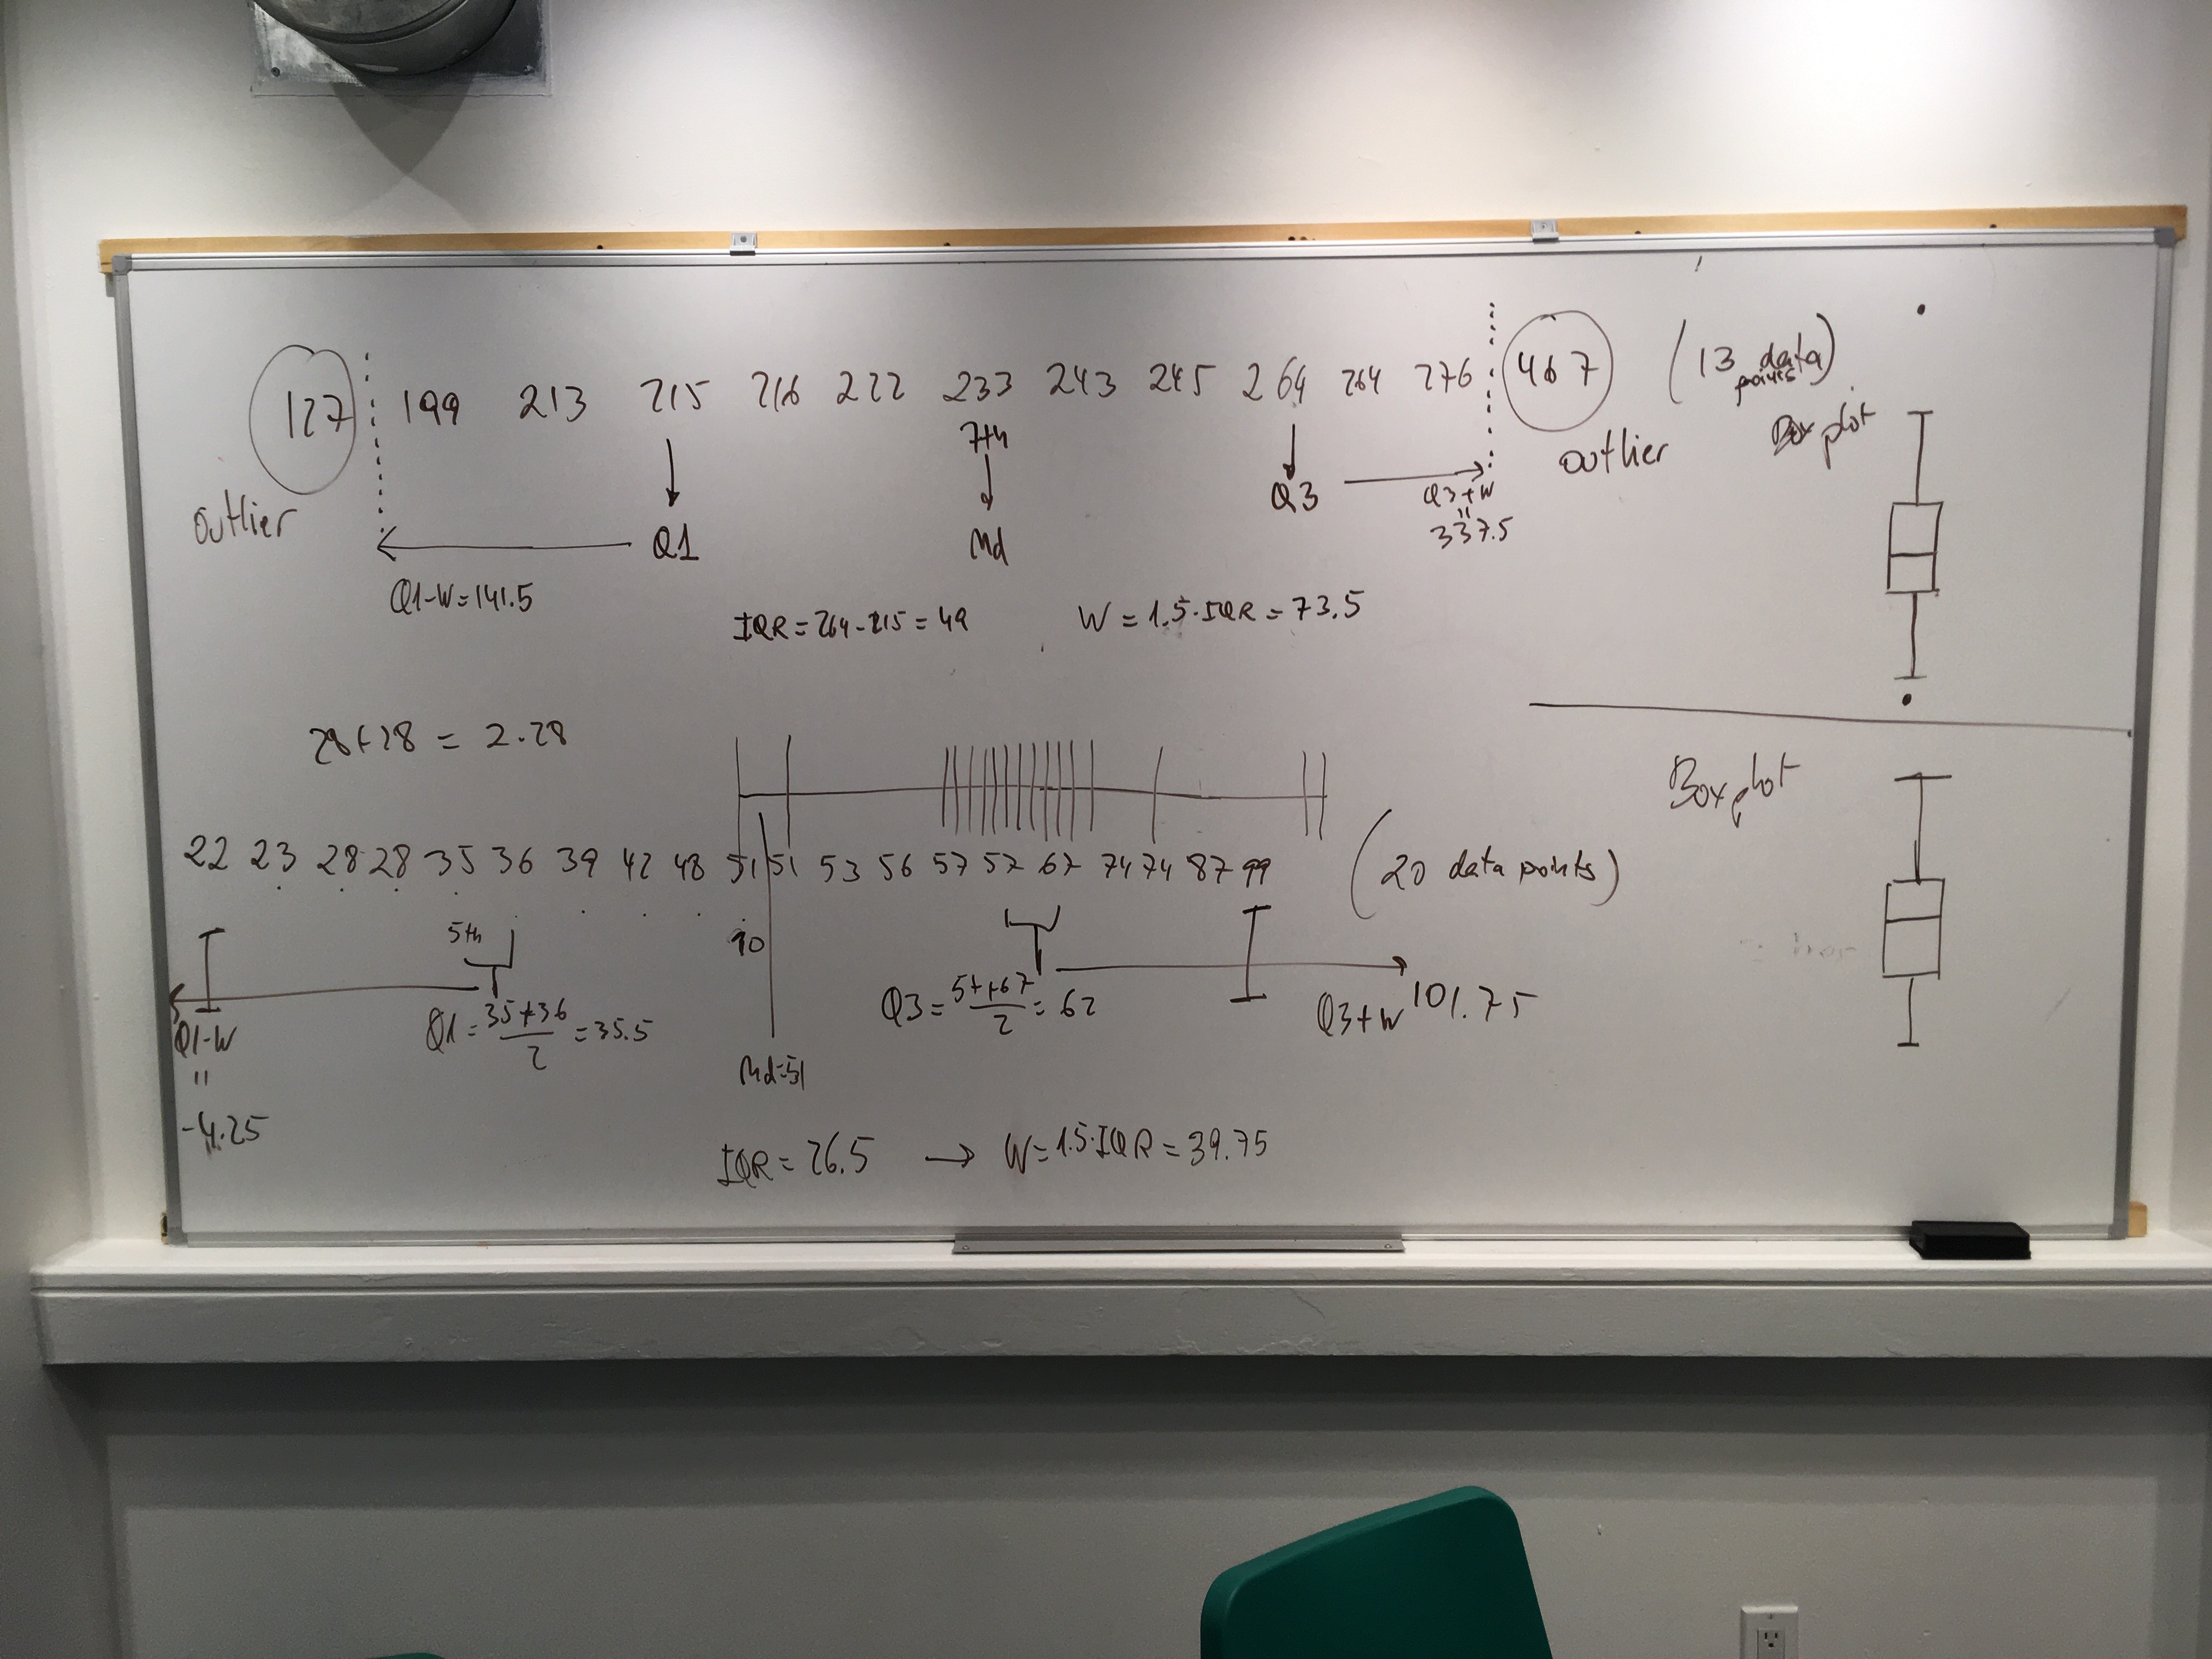 127 199 213 215 216 222 233 243 245 264 264 276 467 (13 data points)
7th
outlier
Q1
Md
Q3
Q3+W
"
337.5
outlier
Box plot
Q1-W=141.5
IQR = 264-215 = 49
W = 1.5·IQR = 73.5
28+28 = 2·28
Box plot
22 23 28 28 35 36 39 42 48 51 51 53 56 57 57 67 74 74 87 99 (20 data points)
5th
10
Q1-W
"
-4.25
Q1 = 35+36 / 2 = 35.5
Md=51
Q3 = 57+67 / 2 = 62
Q3+W 101.75
IQR = 26.5 → W = 1.5·IQR = 39.75